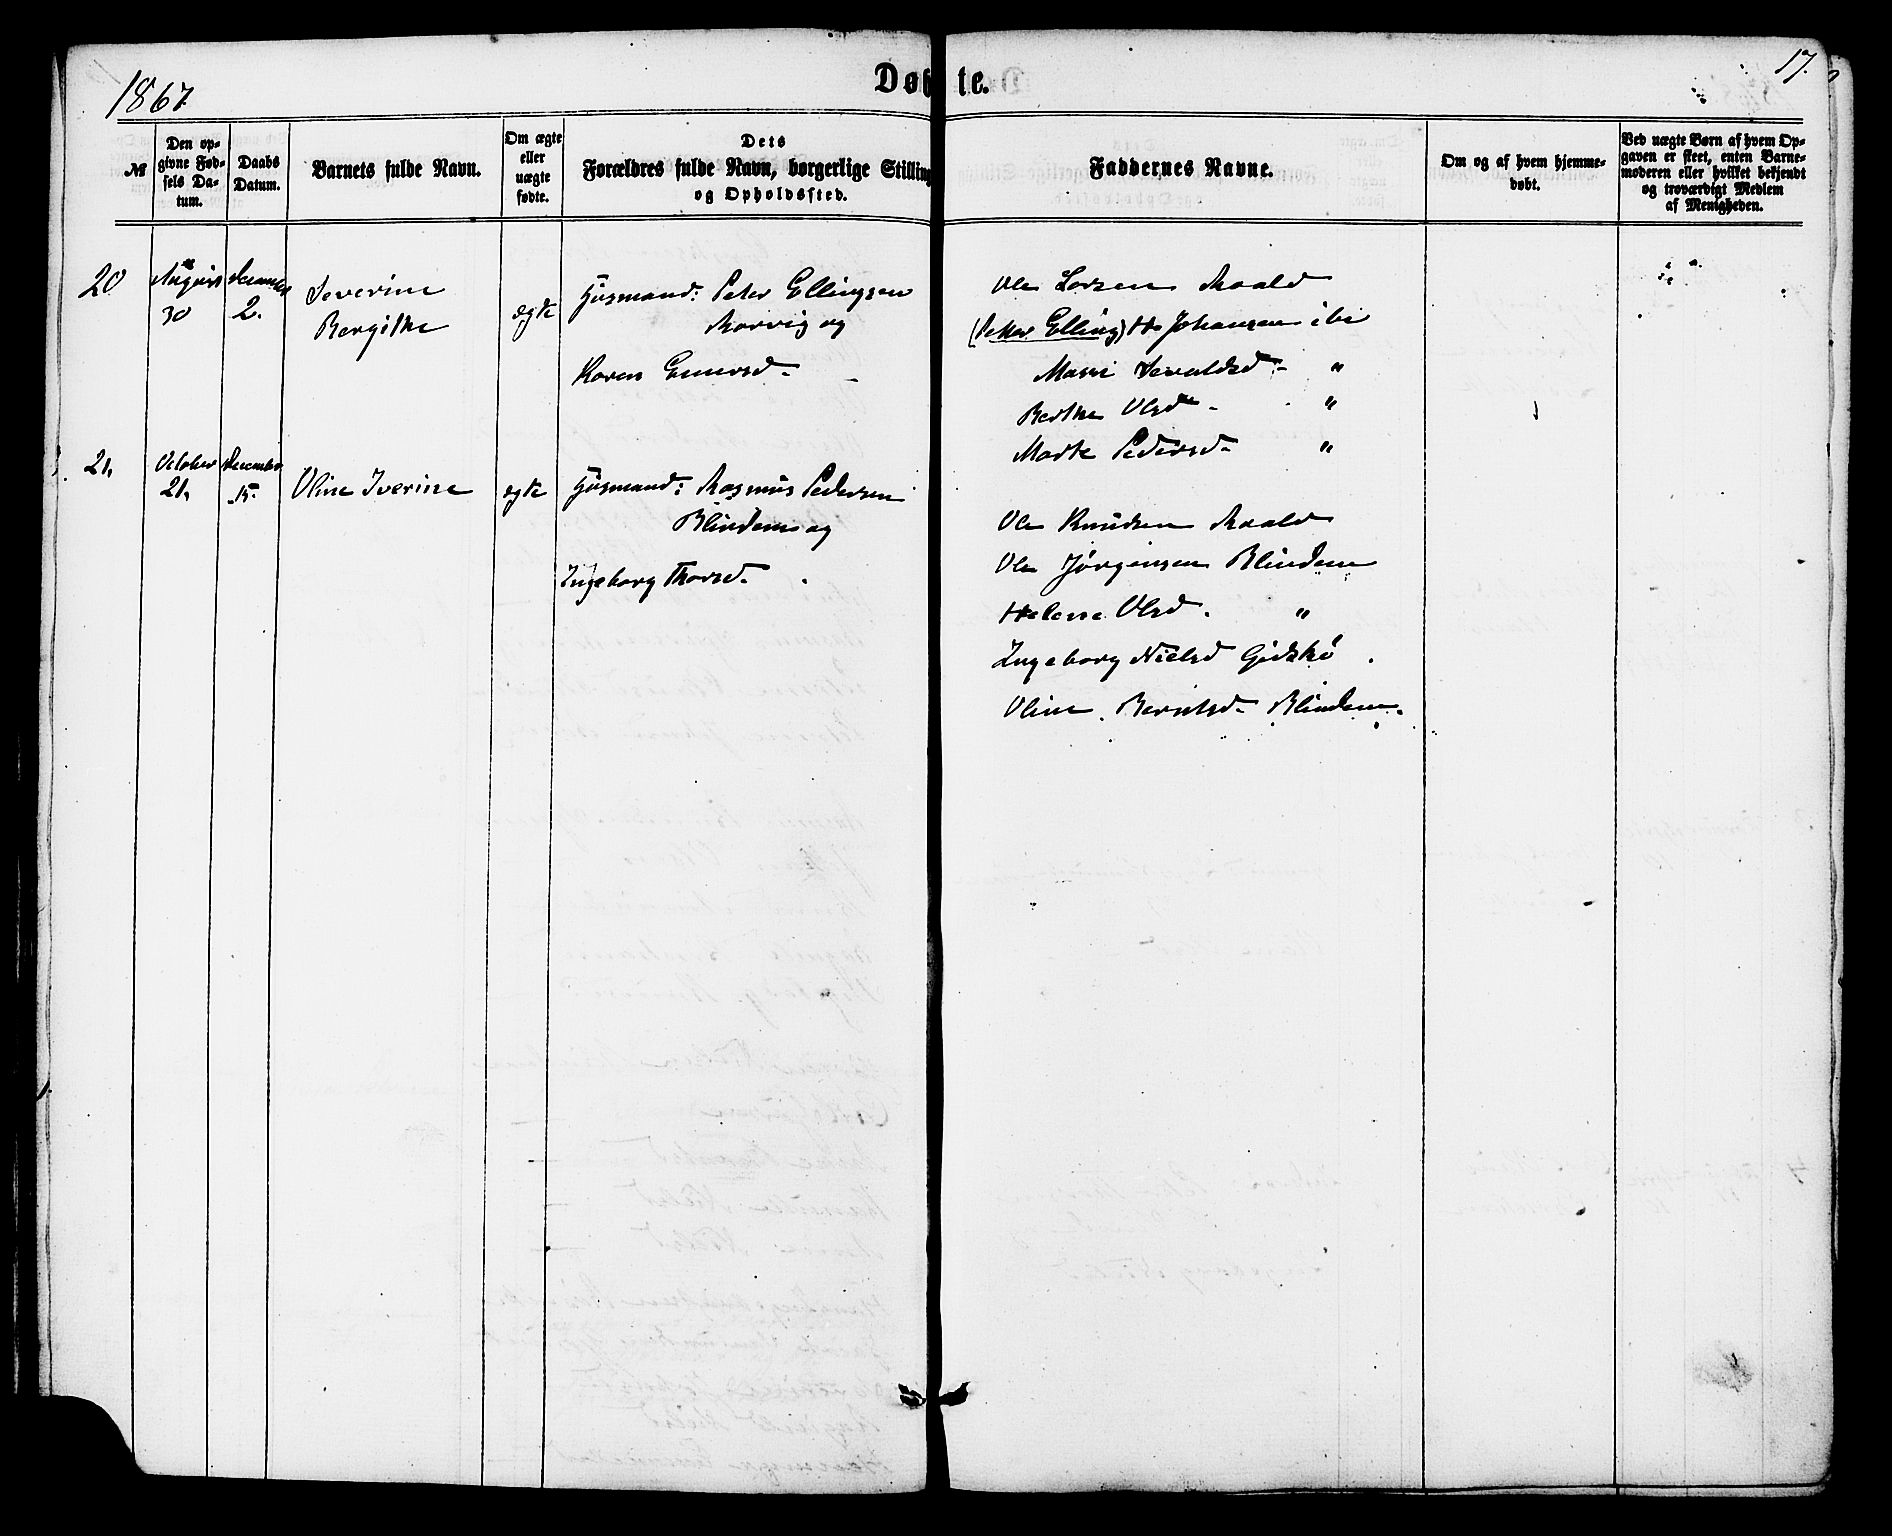 1867.
Døbte.
17.
№
Den op-
givne Fød-
sels Da-
tum.
Daabs
Datum.
Barnets fulde Navn.
Om ægte
eller
uægte
fødte.
Dets
Forældres fulde Navn, borgerlige Stilling
og Opholdssted.
Faddernes Navne.
Om og af hvem hjemme-
døbt.
Ved uægte Børn af hvem Op-
gaven er skeet, enten Barne-
moderen eller hvilket bekjendt
og troværdigt Medlem
af Menigheden.
20
August
30
December
2.
Severine
Bergithe
egte
Huusmand: Peter Ellingsen
og
Karen
Ole Larsen Roald
(Petter Elling) H Johansen ibi
Marri Sevaldsd - "
Berthe Olsd - "
Marte Pedersd - "
21,
October
21,
December
15.
Oline Iverine
egte
Huusmand: Rasmus Pedersen
Blindem og
Ingeborg Thorsd -
Ole Knudsen Roald
Ole Jørgensen Blindem
Helene Olsd. "
Ingeborg Nielsd Gidskø
Oline Berntsd - Blindem.